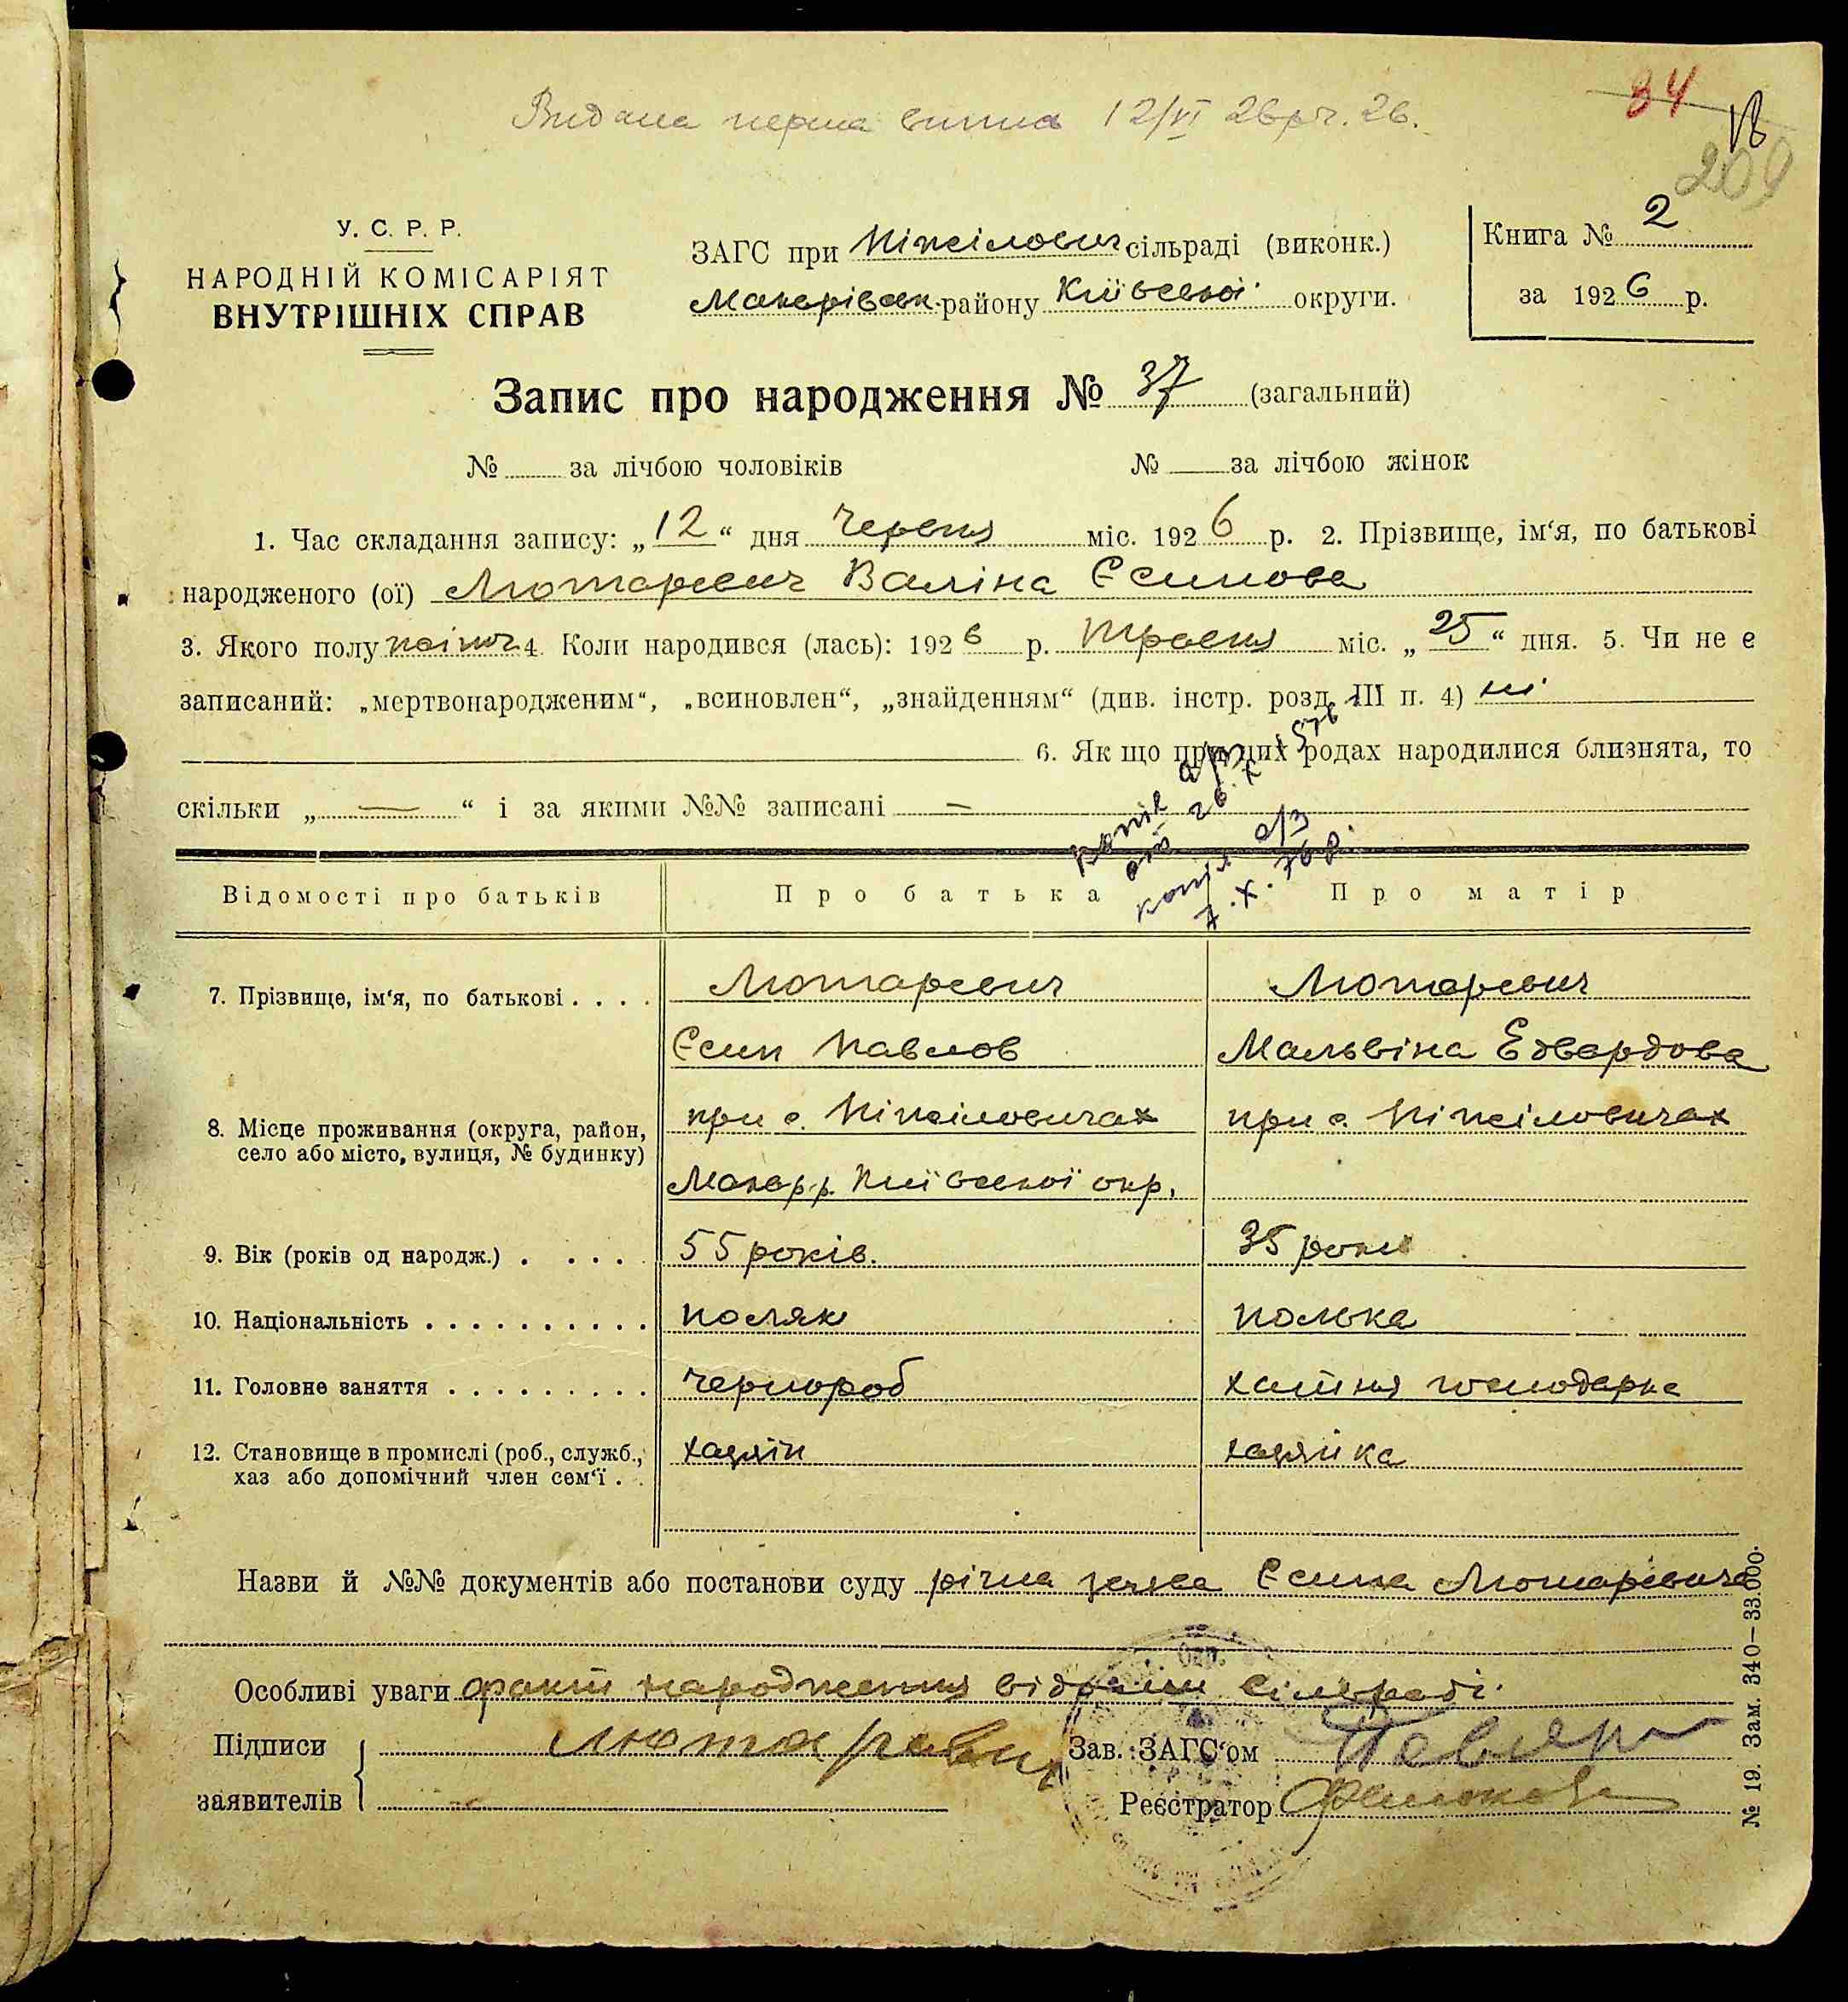 Видана перша випись 12/VI 26 р. ч. 26.
34
209
У. С. Р. Р.
НАРОДНІЙ КОМІСАРІЯТ
ВНУТРІШНІХ СПРАВ
ЗАГС при Ніжілович сільраді (виконк.)
Макарівськ. району Київської округи.
Книга № 2
за 1926 р.
Запис про народження № 37 (загальний)
№ за лічбою чоловіків № за лічбою жінок
1. Час складання запису: „12“ дня Червня міс. 1926 р. 2. Прізвище, ім‘я, по батькові
народженого (ої) Лютаревич Валіна Єсипова
3. Якого полу жіноч. 4. Коли народився (лась): 1926 р. Травня міс. „25“ дня. 5. Чи не є
записаний: „мертвонародженим“, „всиновлен“, „знайденням“ (див. інстр. розд. III п. 4) ні
6. Як що при цих родах народилися близнята, то
скільки „—“ і за якими №№ записані =
копія а/з
от 26.X 1976
копія а/з
7.X.76 р.
Відомості про батьків Про батька Про матір
7. Прізвище, ім‘я, по батькові . . . . Лютаревич Лютаревич
Єсип Павлов Мальвіна Едвардова
8. Місце проживання (округа, район, при с. Ніжіловичах при с. Ніжіловичах
село або місто, вулиця, № будинку)
Макар. р. Київської окр.
9. Вік (років од народж.) . . . . 55 років. 35 роки
10. Національність . . . . . . . . . . поляк полька
11. Головне заняття . . . . . . . . . чернороб хатня господарка
12. Становище в промислі (роб., служб., хазяін хазяйка
хаз або допомічний член сем‘ї . .
Назви й №№ документів або постанови суду річна заява Єсипа Лютаревича
Особливі уваги факт народження відомий сільраді.
Підписи Лютаревич Зав. ЗАГС‘ом
заявителів Реєстратор
№ 19. Зам. 340—33.000.